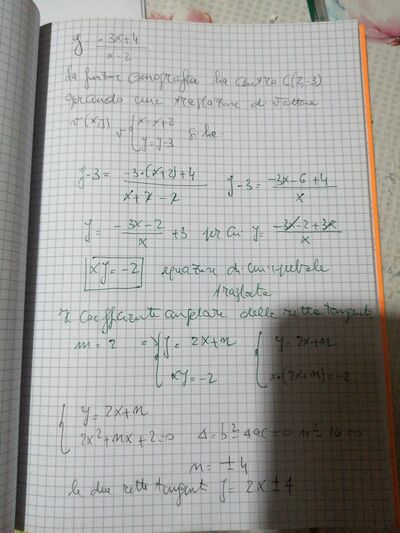 y = (-3x+4)/(x-2)
La funzione omografica ha centro C(2,-3)
operando una traslazione di vettore
v(x,y) v {x = x+2
y = y-3 si ha:
y-3 = (-3·(x+2)+4)/(x+2-2) y-3 = (-3x-6+4)/x
y = (-3x-2)/x +3 per cui y = (-3x-2+3x)/x
xy = -2 equazione di un'iperbole
traslata
Il coefficiente angolare delle rette tangenti
m = 2 => {y = 2x+n {y = 2x+n
xy = -2 x·(2x+n) = -2
{y = 2x+n
2x²+nx+2=0 Δ = b²-4ac=0 n²-16=0
n = ±4
le due rette tangenti y = 2x±4